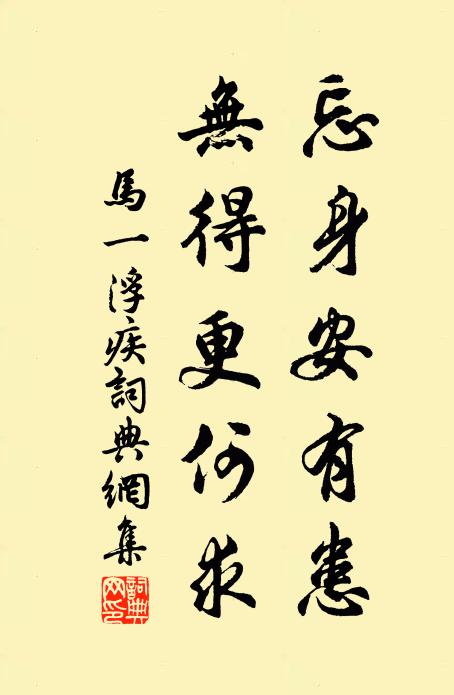 忘身安有患
無得更何求
馬一浮疾詞典網集
詞典网印